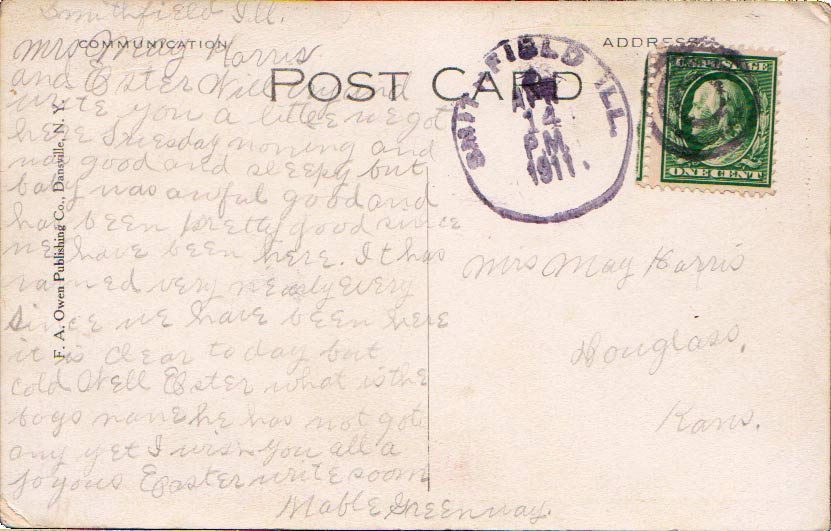 Smithfield Ill.
COMMUNICATION
Mrs May Harris
and Ester Will try and
write you a little we got
here Tuesday morning and
was good and sleepy but
baby was awful good and
has been pretty good since
we have been here. It has
rained very nearly every
since we have been here
it is clear to day but
cold Well Ester what is the
boys name he has not got
any yet I wish you all a
joyous Easter write soon
Mable Greenway.
F. A. Owen Publishing Co., Dansville, N. Y.
POST CARD
ADDRESS
SMITHFIELD ILL.
APR
14
P.M.
1911.
U.S. POSTAGE
ONE CENT
Mrs May Harris
Douglass,
Kans.